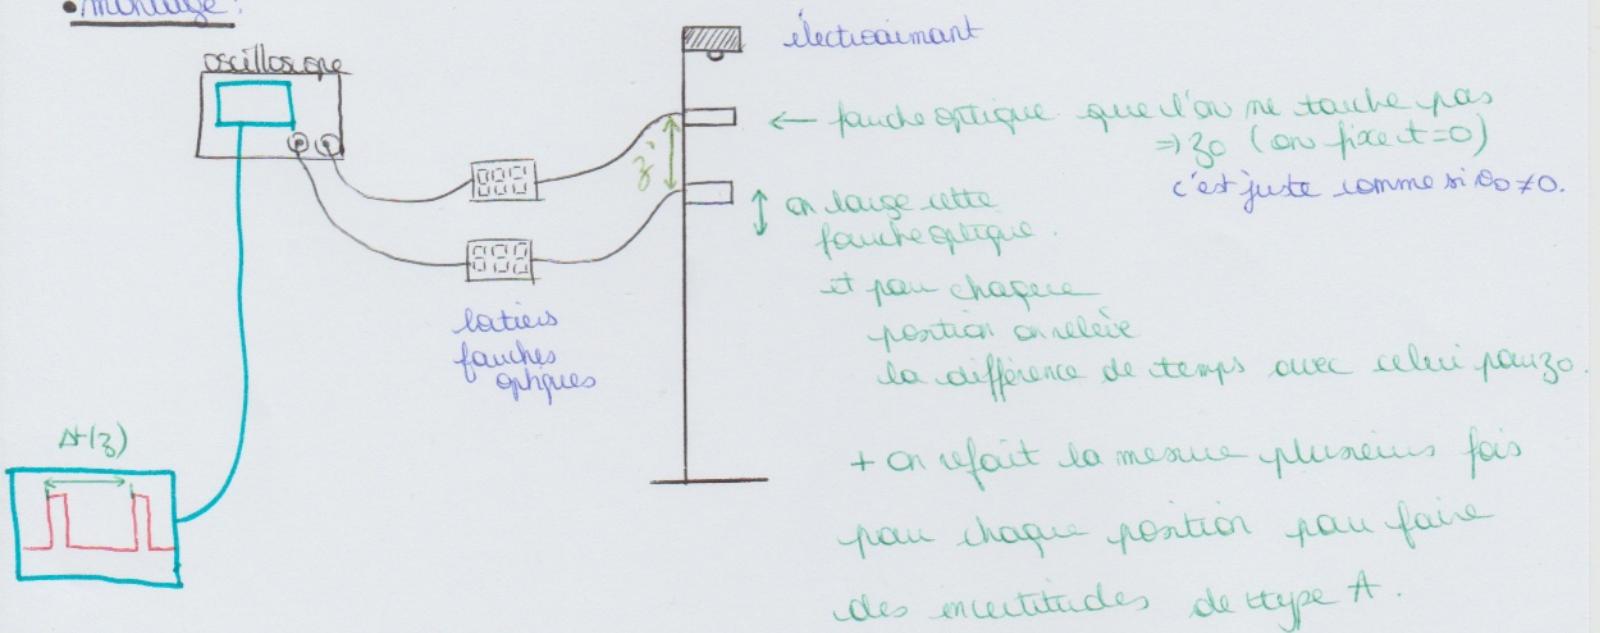 • montage :
oscilloscope
électroaimant
← fourche optique que l'on ne touche pas
⇒ z0 (on fixe t=0)
c'est juste comme si v0 ≠ 0.
z
on bouge cette
fourche optique.
et pour chaque
position on relève
la différence de temps avec celui pour z0.
boitiers
fourches
optiques
Δt(z)
+ on refait la mesure plusieurs fois
pour chaque position pour faire
des incertitudes de type A.